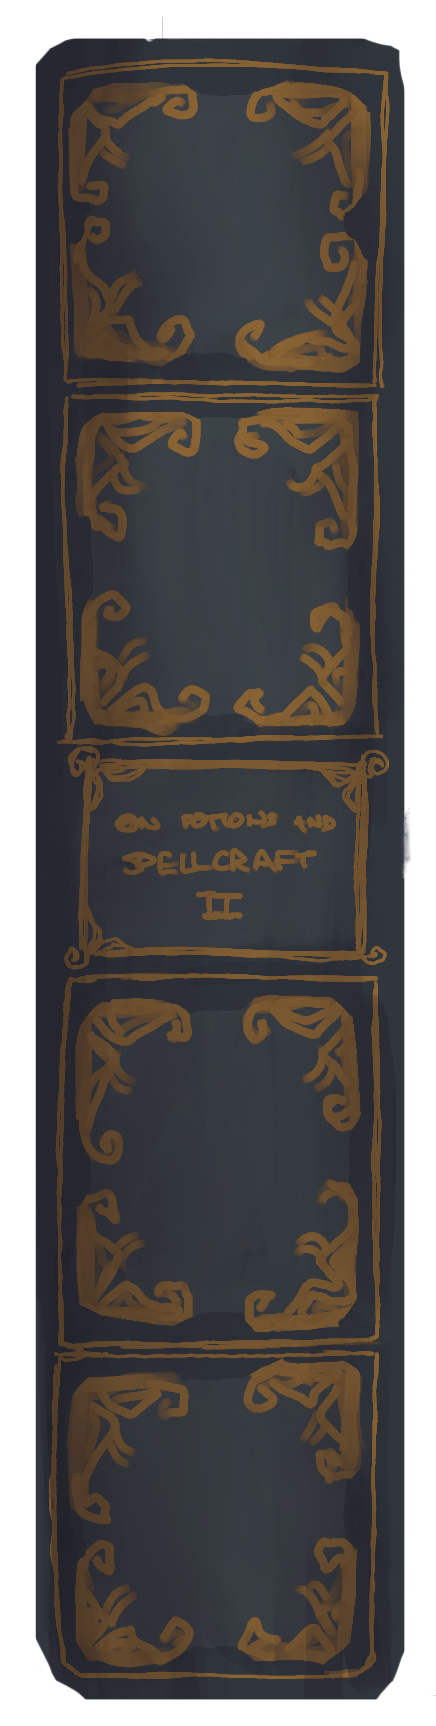 ON POTIONS AND
SPELLCRAFT
II